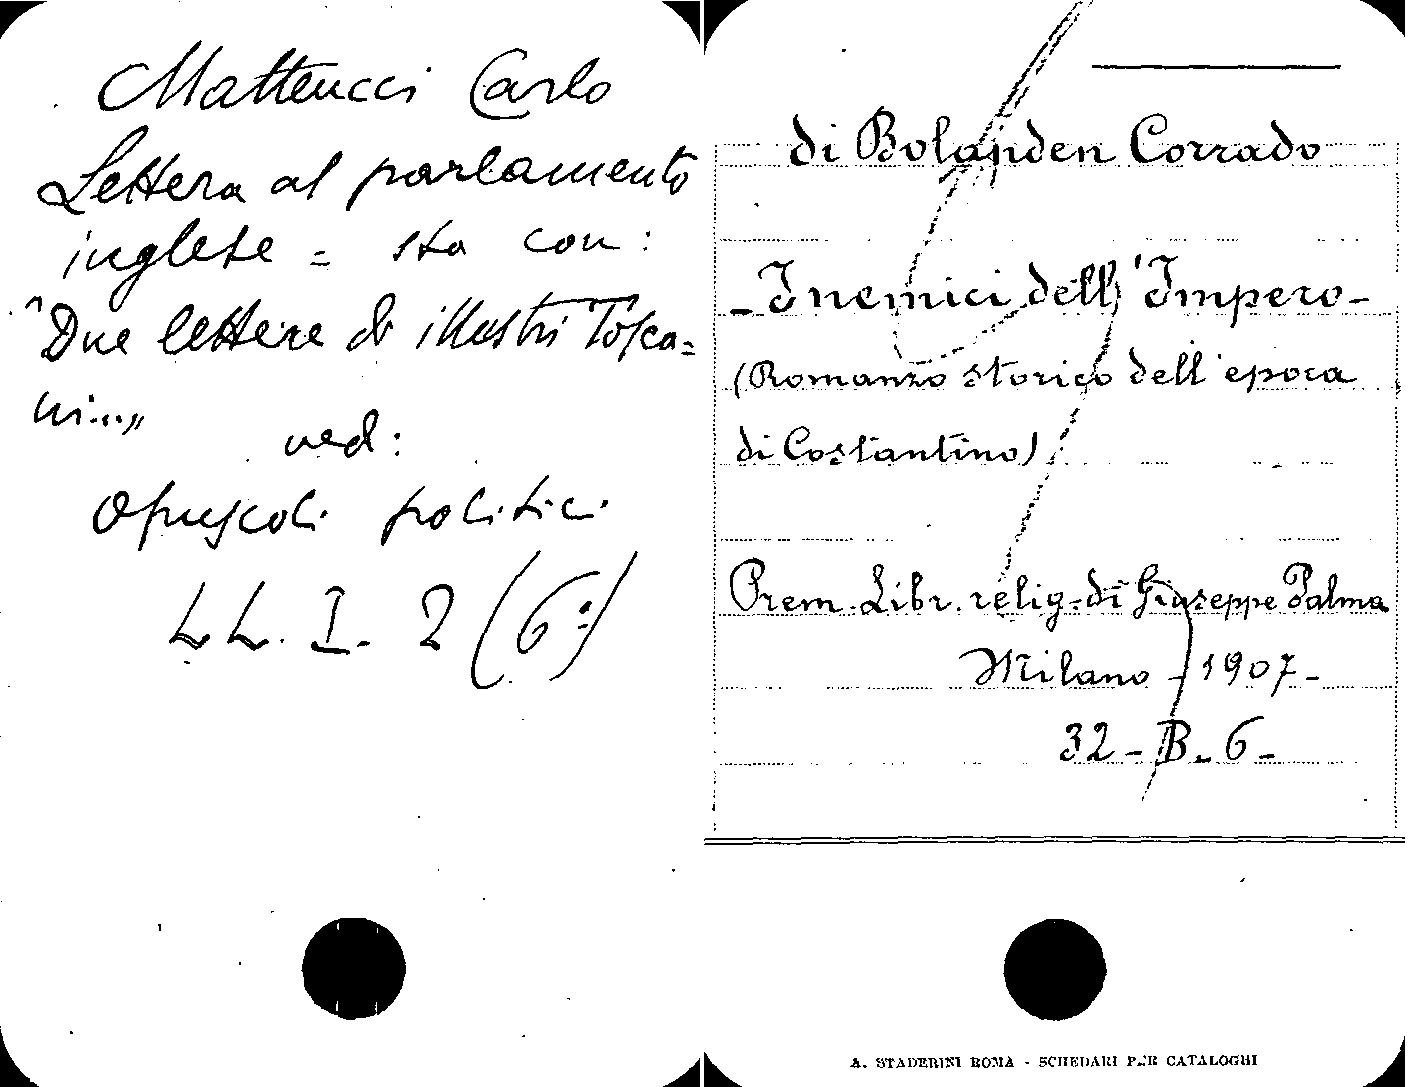 Matteucci Carlo
Lettera al parlamento
inglese = sta con:
"Due lettere di illustri Tosca=
ni...„
ved:
Opuscoli politici
LL. I. 2 (6º)
di Bolanden Corrado
- I nemici dell'Impero -
(Romanzo storico dell'epoca
di Costantino)
Prem. Libr. relig. di Giuseppe Palma
Milano - 1907 -
32 - B. 6 -
A. STADERINI ROMA - SCHEDARI PER CATALOGHI